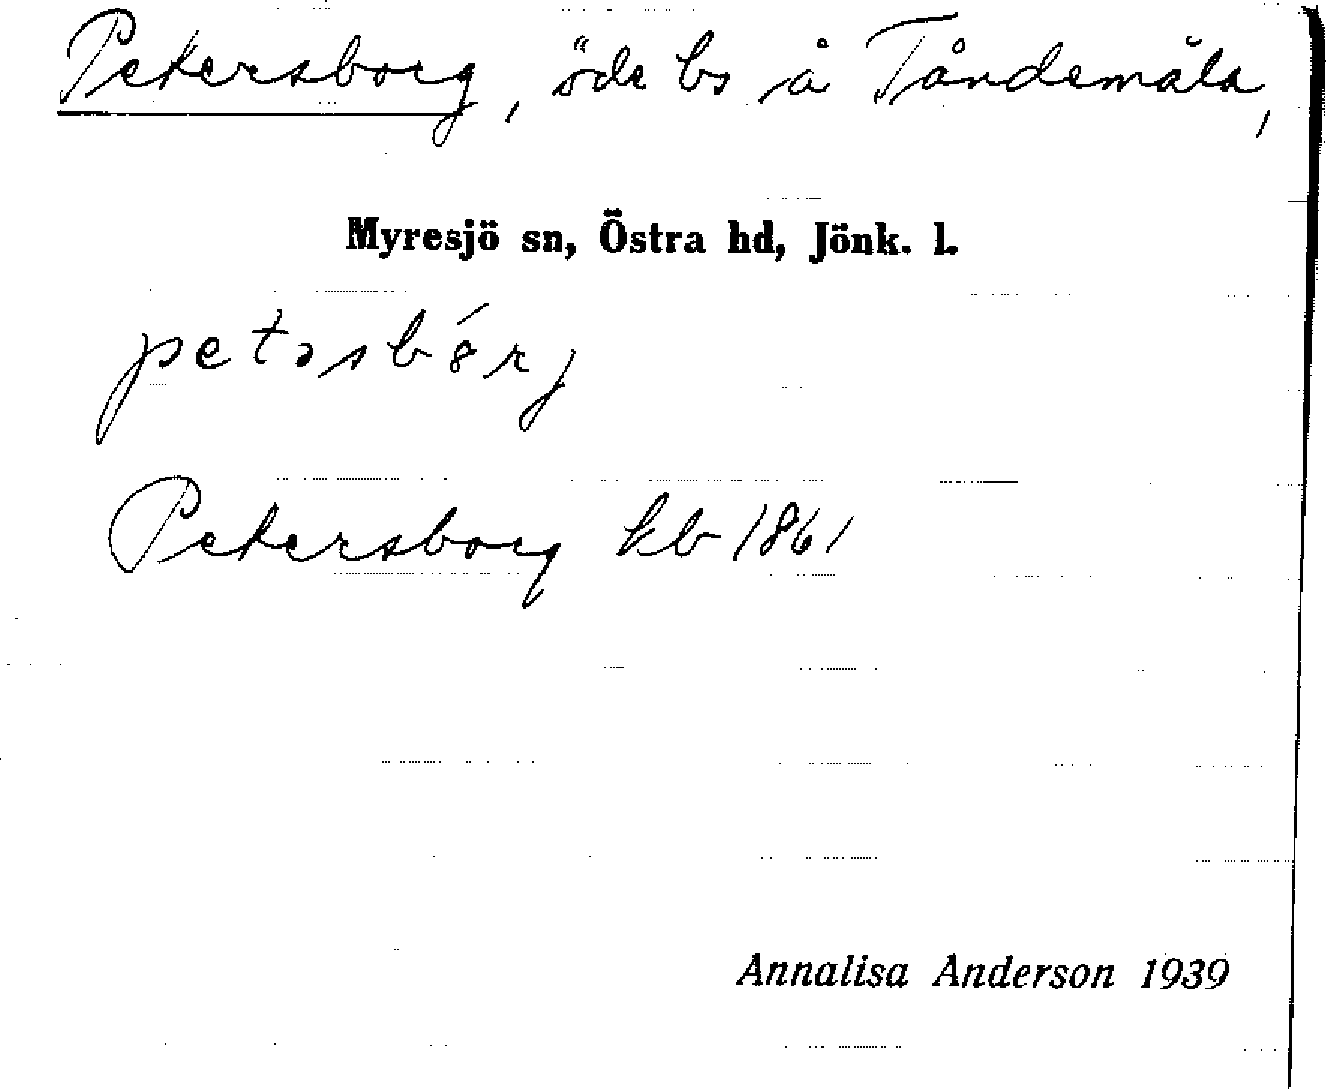 Petersborg, öde bs å Tåndemåla,
Myresjö sn, Östra hd, Jönk. l.
petəsbórj
Petersborg kb 1861
Annalisa Anderson 1939